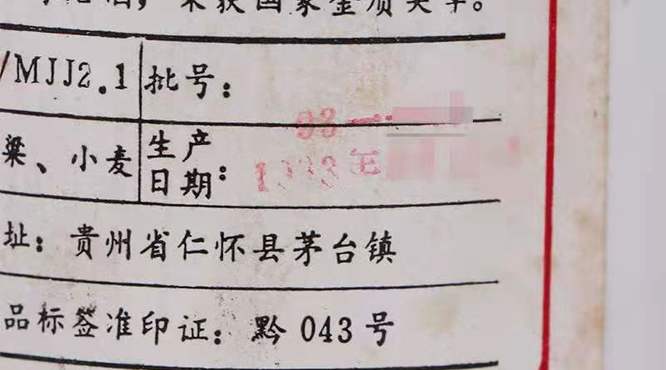 荣获国家金质奖章。
/MJJ2.1 批号：
93-
粱、小麦 生产日期：
1993年
址：贵州省仁怀县茅台镇
品标签准印证：黔043号